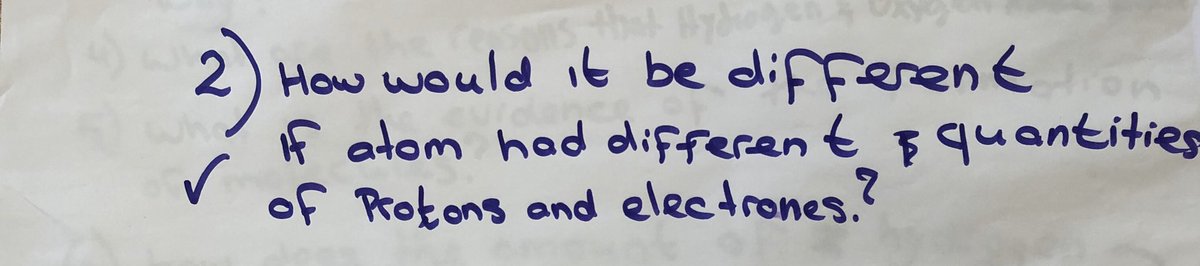 2) How would it be different
If atom had different quantities
✓ of Protons and electrones.?